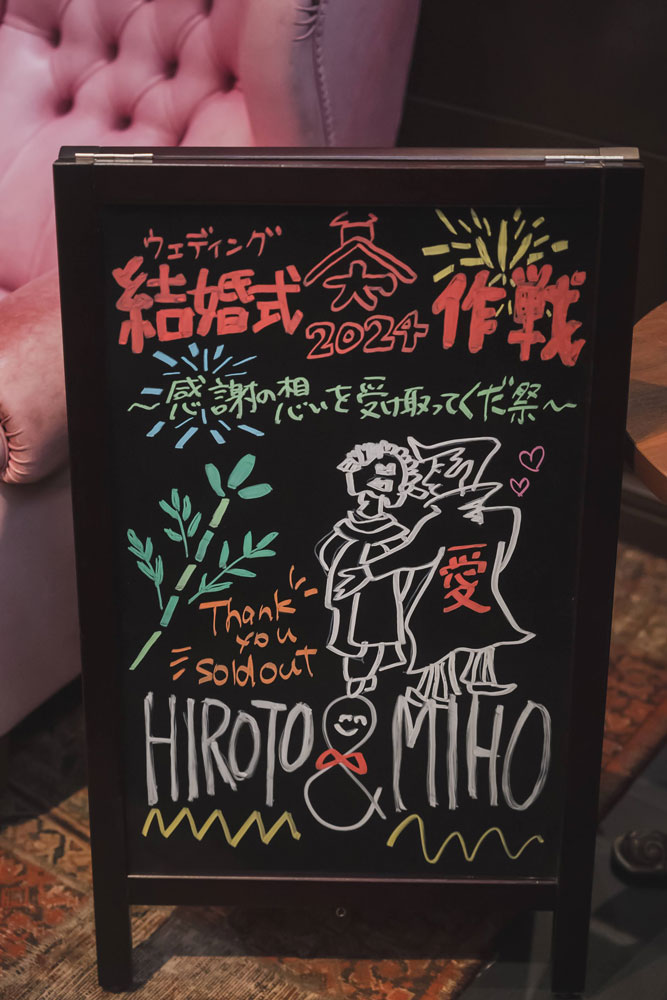 ウェディング
結婚式 太 作戦
2024
～感謝の想いを受け取ってくだ祭～
愛
Thank
you
sold out
HIROTO & MIHO